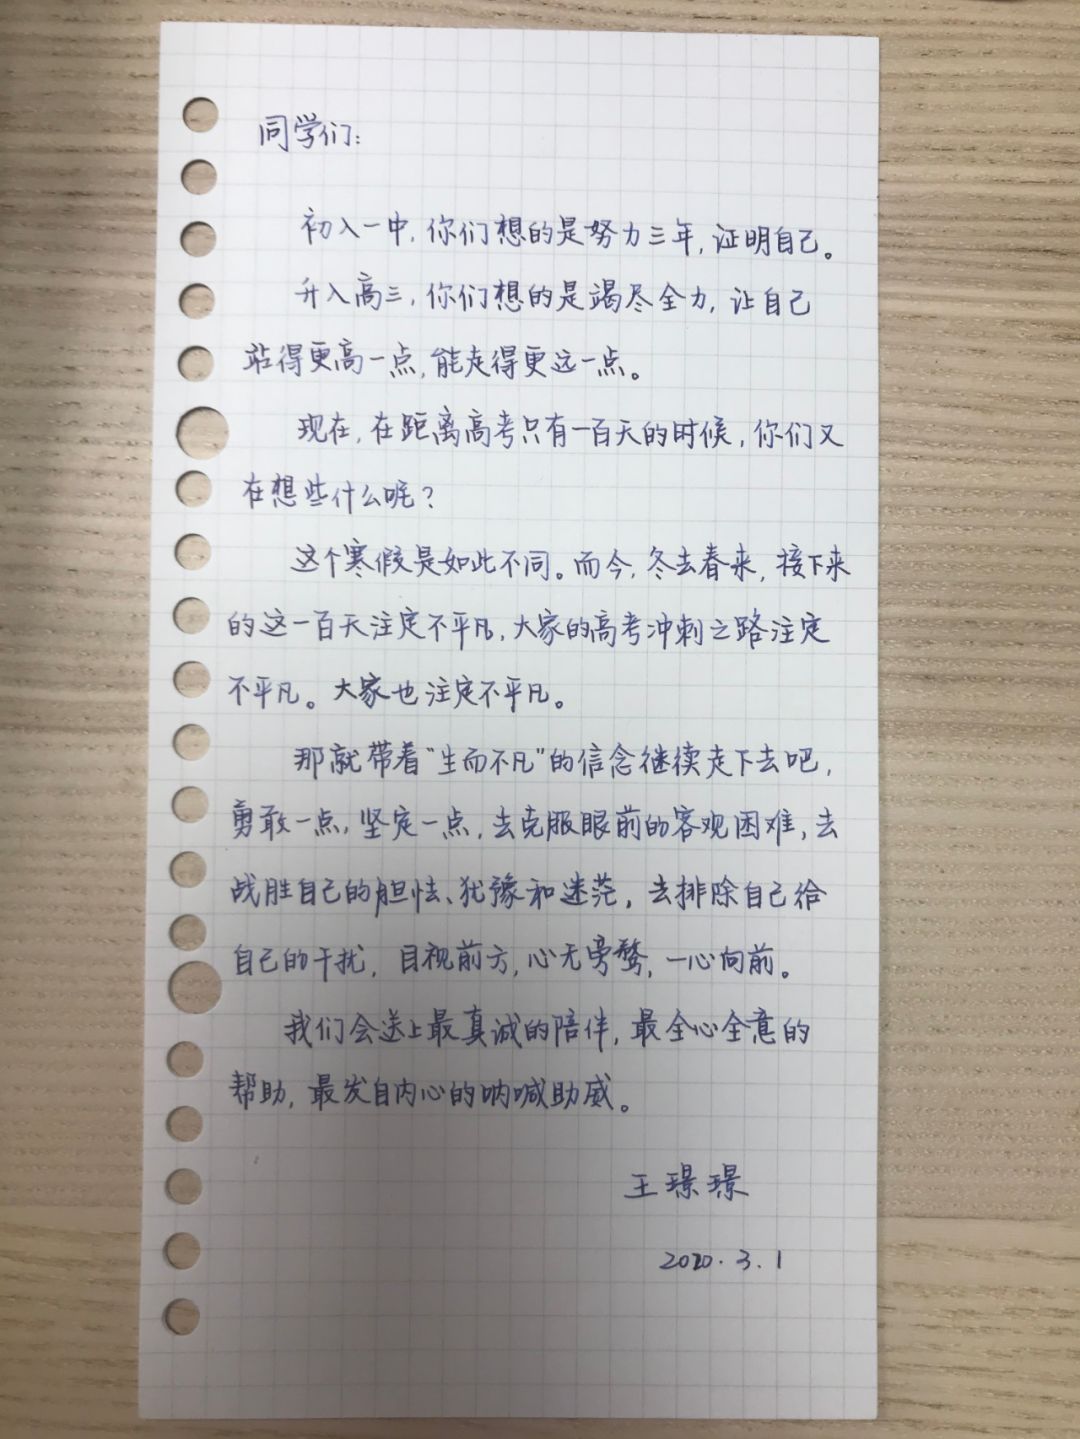 同学们:
初入一中,你们想的是努力三年,证明自己。
升入高三,你们想的是竭尽全力,让自己
站得更高一点,能走得更远一点。
现在,在距离高考只有一百天的时候,你们又
在想些什么呢?
这个寒假是如此不同。而今,冬去春来,接下来
的这一百天注定不平凡,大家的高考冲刺之路注定
不平凡。大家也注定不平凡。
那就带着“生而不凡”的信念继续走下去吧,
勇敢一点,坚定一点,去克服眼前的客观困难,去
战胜自己的胆怯、犹豫和迷茫,去排除自己给
自己的干扰,目视前方,心无旁骛,一心向前。
我们会送上最真诚的陪伴,最全心全意的
帮助,最发自内心的呐喊助威。
王璟璟
2020.3.1